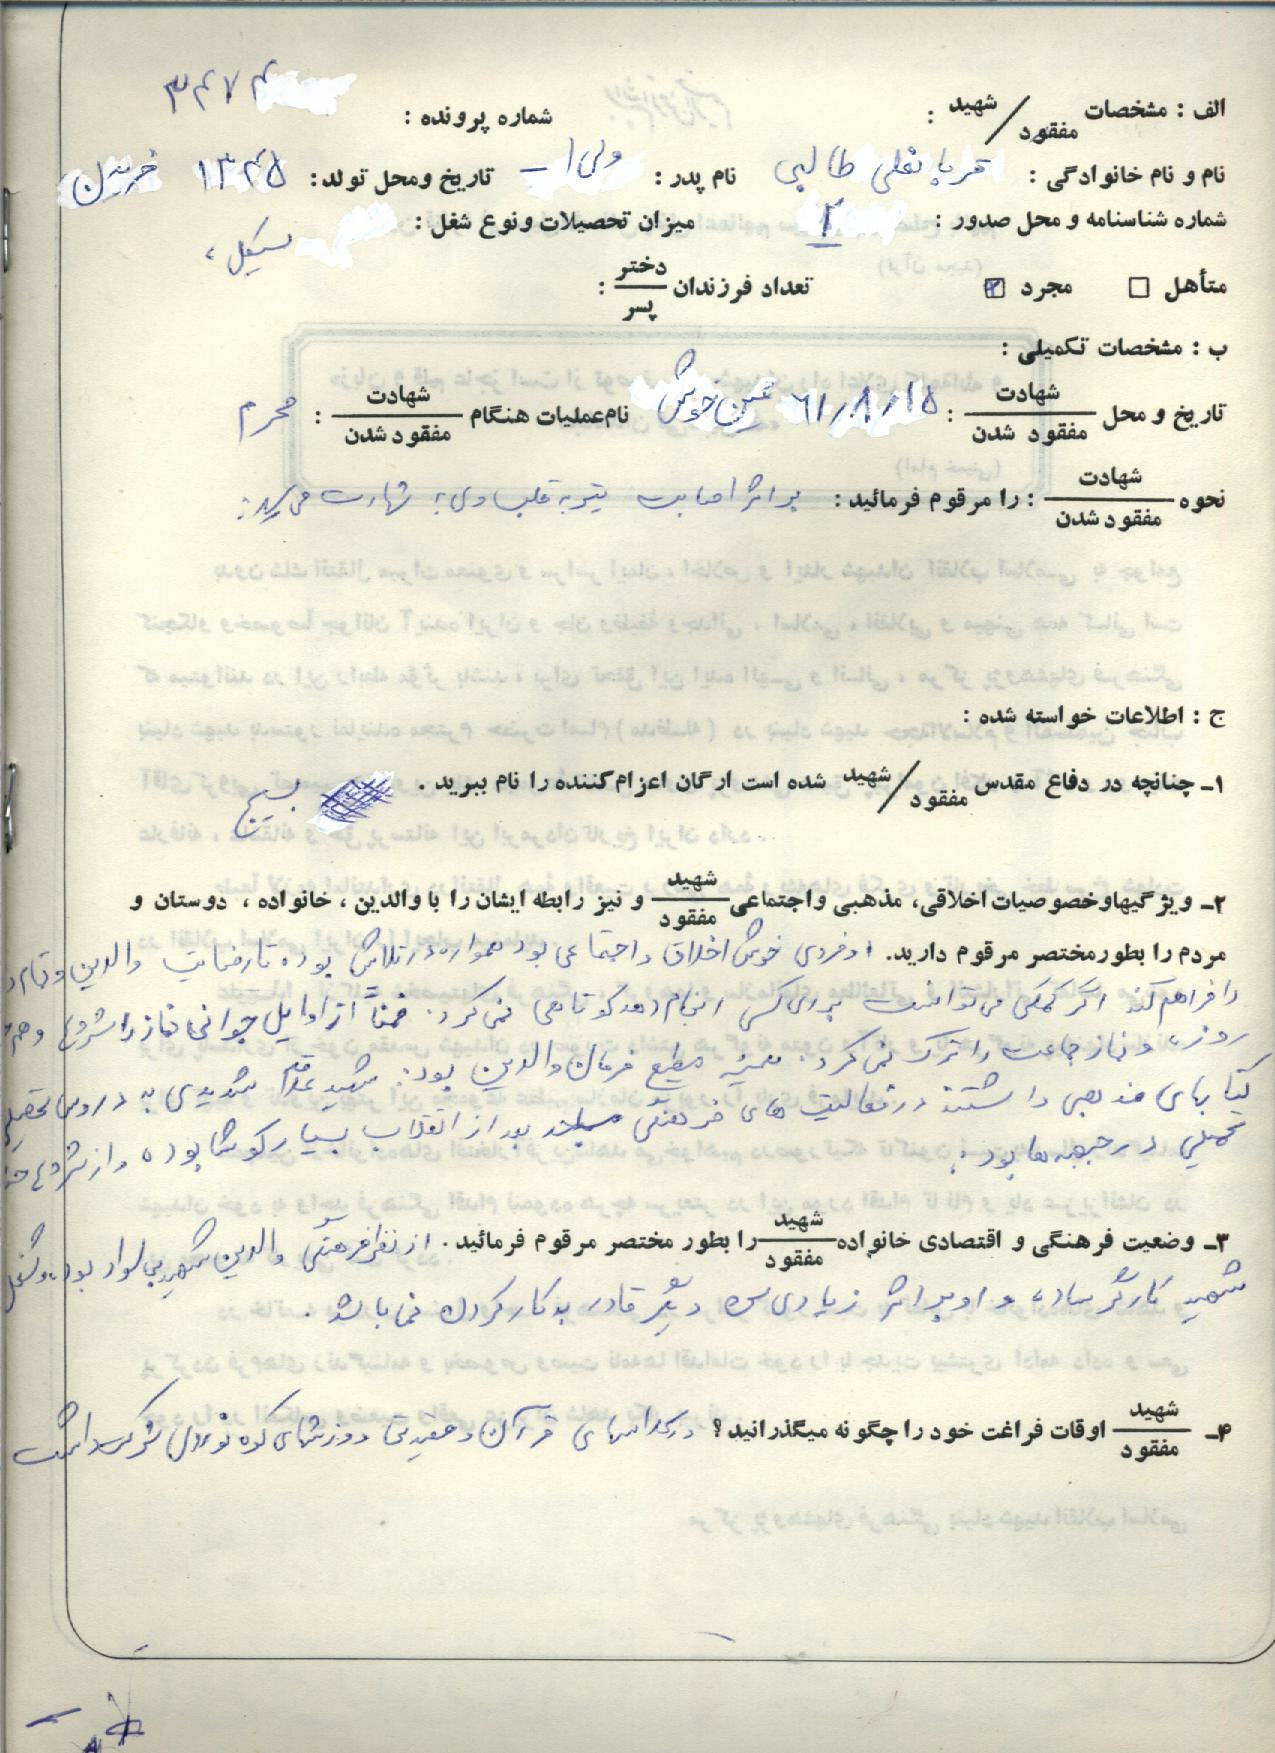 الف : مشخصات شهید / مفقود :
شماره پرونده : ۳۴۷۴
نام و نام خانوادگی : قربانعلی طالبی نام پدر : ولی ا... تاریخ ومحل تولد : ۱۳۴۵ فریدن
شماره شناسنامه و محل صدور : ۲ میزان تحصیلات ونوع شغل : سیکل
متأهل ☐ مجرد ☑ تعداد فرزندان دختر / پسر :
ب : مشخصات تکمیلی :
تاریخ و محل شهادت / مفقود شدن : ۶۱/۸/۱۵ عین خوش نام عملیات هنگام شهادت / مفقود شدن : محرم
نحوه شهادت / مفقود شدن : را مرقوم فرمائید : بر اثر اصابت تیر به قلب وی به شهادت می‌رسد.
ج : اطلاعات خواسته شده :
۱ـ چنانچه در دفاع مقدس شهید / مفقود شده است ارگان اعزام کننده را نام ببرید . بسیج
۲ـ ویژگیهاوخصوصیات اخلاقی، مذهبی واجتماعی شهید / مفقود و نیز رابطه ایشان را با والدین ، خانواده ، دوستان و
مردم را بطور مختصر مرقوم دارید. او فردی خوش اخلاق و اجتماعی بود همواره در تلاش بوده تا رضایت والدین و
را فراهم کند اگر کمکی می توانست برای کسی انجام دهد کوتاهی نمی کرد. ضمناً از اوایل جوانی نماز را شروع و
روزه و نماز جماعت را ترک نمی کرد. همیشه مطیع فرمان والدین بود. شهید علاقه شدیدی به دروس
کتابهای مذهبی داشتند در فعالیت های فرهنگی مسجد بعد از انقلاب بسیار کوشا بوده و از شروع
تحمیلی در جبهه ها بود.
۳ـ وضعیت فرهنگی و اقتصادی خانواده شهید / مفقود را بطور مختصر مرقوم فرمائید . از نظر فرهنگی والدین شهید بی سواد بوده و شغل
شهید کارگر ساده و او بر اثر زیادی سن دیگر قادر به کار کردن نمی باشد .
۴ـ شهید / مفقود اوقات فراغت خود را چگونه میگذرانید ؟ در کلاسهای قرآن و عقیدتی و ورزشهای کوه نوردی شرکت داشت